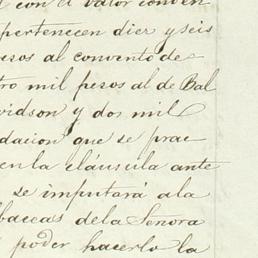 con el valor conven
pertenecen diez y seis
esos al convento de
tro mil pesos al de Bal
vidson y dos mil
dacion que se prac
en la cláusula ante
se imputará a la
baceas de la Señora
poder hacerlo la